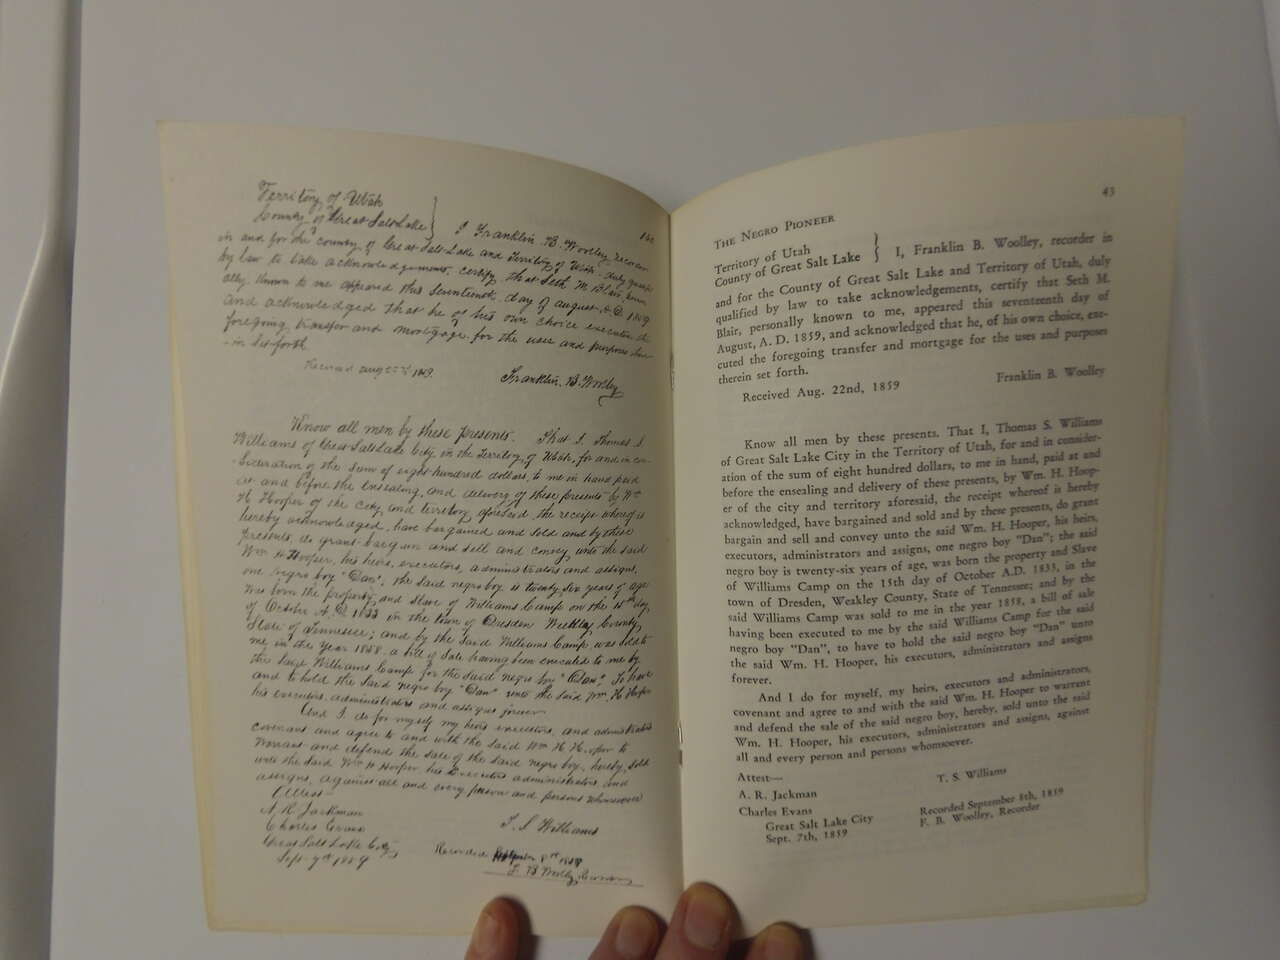 Territory of Utah
County of Great Salt Lake
I Franklin B. Woolley, recorder
in and for the county of Great Salt Lake and Territory of Utah, duly
by law to take acknowledgements, certify, that Seth M. Blair,
ally known to me appeared this Seventeenth day of august A.D. 1859
and acknowledged that he of his own choice executed the
foregoing transfer and mortgage for the uses and purposes
in set forth
Franklin B. Woolley
Know all men by these presents. That I, Thomas S.
Williams of Great Salt Lake City in the Territory of Utah, for and in con-
sideration of the sum of eight hundred dollars, to me in hand paid
at and before the ensealing and delivery of these presents by Wm
H Hooper of the city and territory aforesaid, the receipt whereof is
hereby acknowledged, have bargained and sold and by these
presents, do grant bargain and sell and convey unto the said
Wm H Hooper, his heirs, executors, administrators and assigns,
one negro boy "Dan", the said negro boy is twenty six years of age
was born the property and slave of Williams Camp on the 15th day
of October A.D. 1833 in the town of Dresden Weekley County,
State of Tennessee; and by the said Williams Camp was sold to
me in the year 1858 a bill of sale having been executed to me by
the said Williams Camp for the said negro boy "Dan". To have
and to hold the said negro boy "Dan" unto the said Wm. H Hooper
his executors administrators and assigns forever
And I do for myself my heirs executors, and administrators
covenant and agree to and with the said Wm H Hooper to
warrant and defend the sale of the said negro boy, hereby, sold
unto the said Wm H Hooper his executors administrators and
assigns, against all and every person and persons whomsoever
Attest
A R Jackman
Charles Evans
Great Salt Lake City
Sept 7th 1859
T. S Williams
Recorded September 8th 1859
F B Woolley Recorder
THE NEGRO PIONEER
43
Territory of Utah
County of Great Salt Lake } I, Franklin B. Woolley, recorder in
and for the County of Great Salt Lake and Territory of Utah, duly
qualified by law to take acknowledgements, certify that Seth M.
Blair, personally known to me, appeared this seventeenth day of
August, A. D. 1859, and acknowledged that he, of his own choice, exe-
cuted the foregoing transfer and mortgage for the uses and purposes
therein set forth.
Received Aug. 22nd, 1859
Franklin B. Woolley
Know all men by these presents. That I, Thomas S. Williams
of Great Salt Lake City in the Territory of Utah, for and in consider-
ation of the sum of eight hundred dollars, to me in hand, paid at and
before the ensealing and delivery of these presents, by Wm. H. Hoop-
er of the city and territory aforesaid, the receipt whereof is hereby
acknowledged, have bargained and sold and by these presents, do grant
bargain and sell and convey unto the said Wm. H. Hooper, his heirs,
executors, administrators and assigns, one negro boy "Dan"; the said
negro boy is twenty-six years of age, was born the property and Slave
of Williams Camp on the 15th day of October A.D. 1833, in the
town of Dresden, Weakley County, State of Tennessee; and by the
said Williams Camp was sold to me in the year 1858, a bill of sale
having been executed to me by the said Williams Camp for the said
negro boy "Dan", to have to hold the said negro boy "Dan" unto
the said Wm. H. Hooper, his executors, administrators and assigns
forever.
And I do for myself, my heirs, executors and administrators,
covenant and agree to and with the said Wm. H. Hooper to warrant
and defend the sale of the said negro boy, hereby, sold unto the said
Wm. H. Hooper, his executors, administrators and assigns, against
all and every person and persons whomsoever.
Attest—
T. S. Williams
A. R. Jackman
Charles Evans
Great Salt Lake City
Sept. 7th, 1859
Recorded September 8th, 1859
F. B. Woolley, Recorder